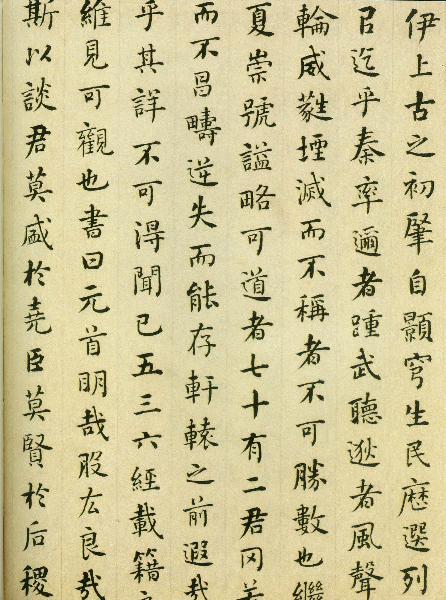 伊上古之初肇自顥穹生民歷選列
辟迄乎秦率邇者踵武聽逖者風聲
輪威蕤堙滅而不稱者不可勝數也繼
夏崇號謚略可道者七十有二君罔若
而不昌疇逆失而能存軒轅之前遐哉
乎其詳不可得聞已五三六經載籍
維見可觀也書曰元首明哉股厷良哉
斯以談君莫盛於堯臣莫賢於后稷